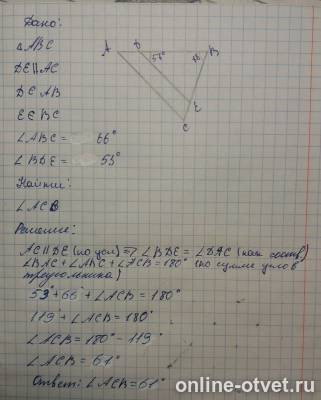 Дано:
△ABC
DE||AC
D∈AB
E∈BC
∠ABC = 66°
∠BDE = 53°
Найти:
∠ACB
Решение:
AC||DE (по усл) => ∠BDE = ∠DAC (как соотв)
∠BAC + ∠ABC + ∠ACB = 180° (по сумме углов
треугольника)
53° + 66° + ∠ACB = 180°
119 + ∠ACB = 180°
∠ACB = 180° - 119°
∠ACB = 61°
Ответ: ∠ACB = 61°
A D B
E
C
online-otvet.ru